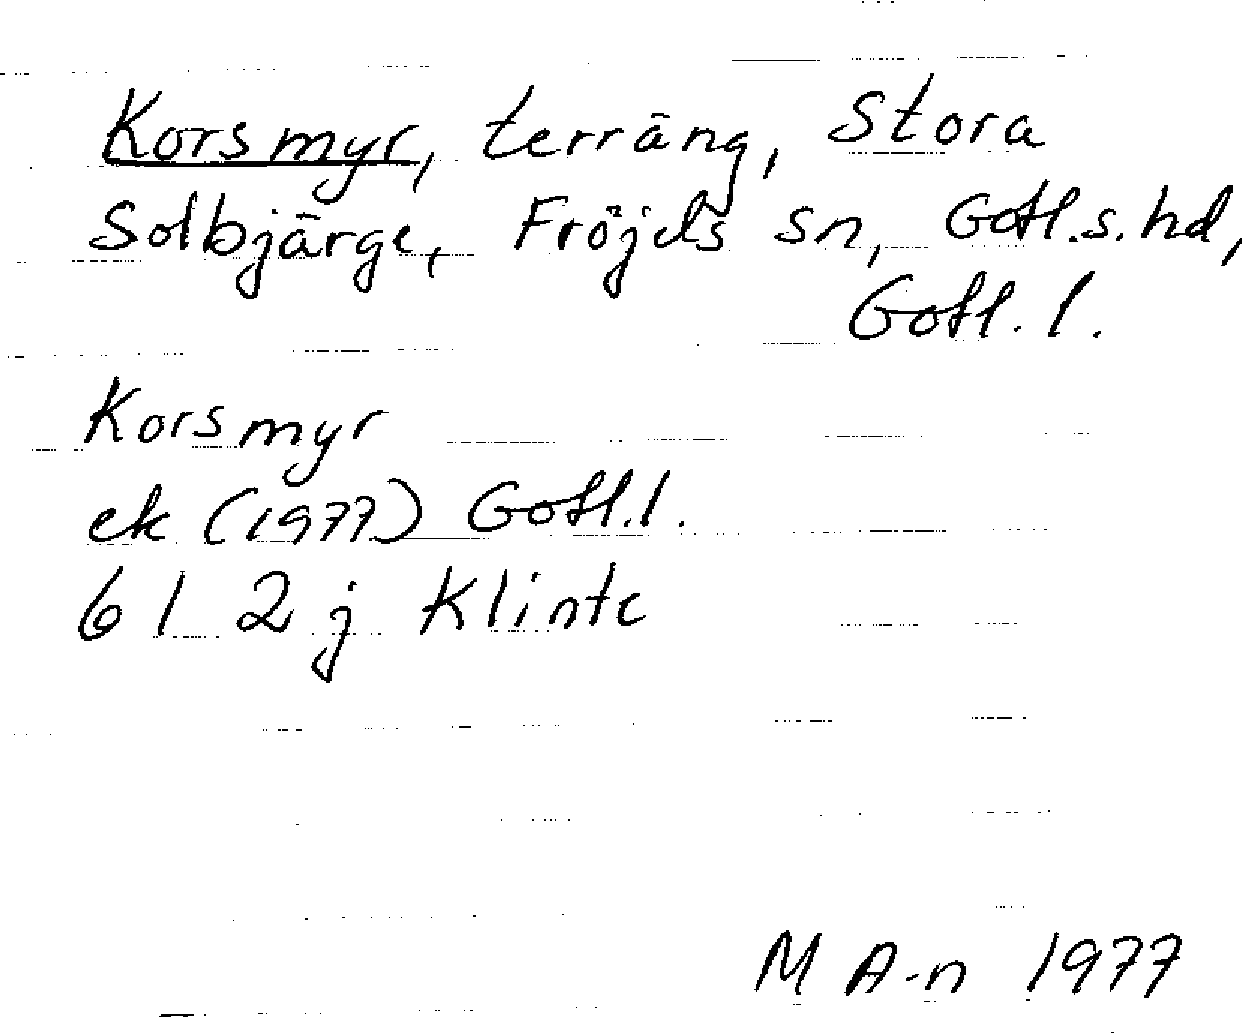 Korsmyr, terräng, Stora
Solbjärge, Fröjels sn, Gotl.s. hd,
Gotl. l.
Korsmyr
ek (1977) Gotl.l.
6 I 2 j Klinte
M A-n 1977